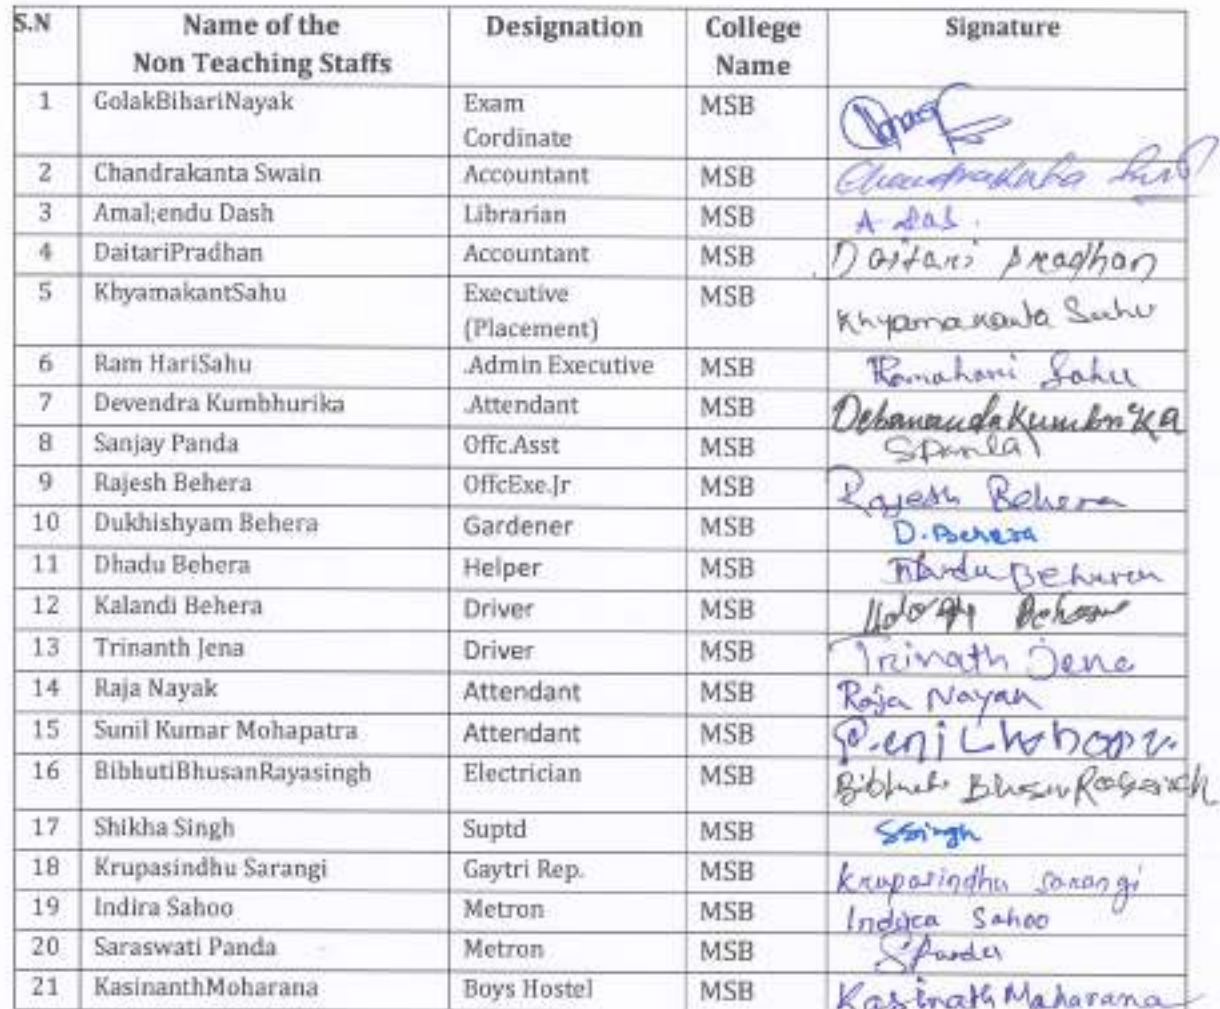 S.N Name of the Designation College Signature
Non Teaching Staffs Name
1 GolakBihariNayak Exam MSB
Cordinate
2 Chandrakanta Swain Accountant MSB Chandrakanta
3 Amal;endu Dash Librarian MSB A-das.
4 DaitariPradhan Accountant MSB Daitari Pradhan
5 KhyamakantSahu Executive MSB Khyamakanta Sahu
(Placement)
6 Ram HariSahu .Admin Executive MSB Ramahari Sahu
7 Devendra Kumbhurika .Attendant MSB
8 Sanjay Panda Offc.Asst MSB SPanda
9 Rajesh Behera OffcExe.Jr MSB Rajesh Behera
10 Dukhishyam Behera Gardener MSB D.Behera
11 Dhadu Behera Helper MSB
12 Kalandi Behera Driver MSB
13 Trinanth Jena Driver MSB Trinath Jena
14 Raja Nayak Attendant MSB Raja Nayak
15 Sunil Kumar Mohapatra Attendant MSB
16 BibhutiBhusanRayasingh Electrician MSB
17 Shikha Singh Suptd MSB SSingh
18 Krupasindhu Sarangi Gaytri Rep. MSB Krupasindhu Sarangi
19 Indira Sahoo Metron MSB Sahoo
20 Saraswati Panda Metron MSB SPanda
21 KasinanthMoharana Boys Hostel MSB Kasinath Maharana